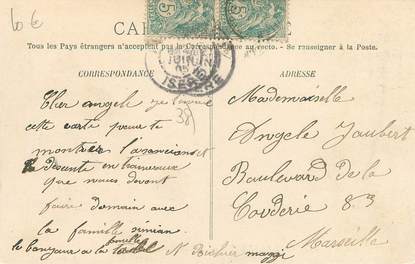 10 €
CA
5
5
Tous les Pays étrangers n'acceptent pas la Correspondance au recto. — Se renseigner à la Poste.
CORRESPONDANCE
ADRESSE
05
ISÈRE
38
Cher angèle je t'envoie
cette carte pour te
montrer l'
descente en traineaux
que nous devont
faire domain avec
la famille simian.
le bonjour a la famille
Mademoiselle
Angele Jaubert
Boulevard de la
Corderie 83
Marseille